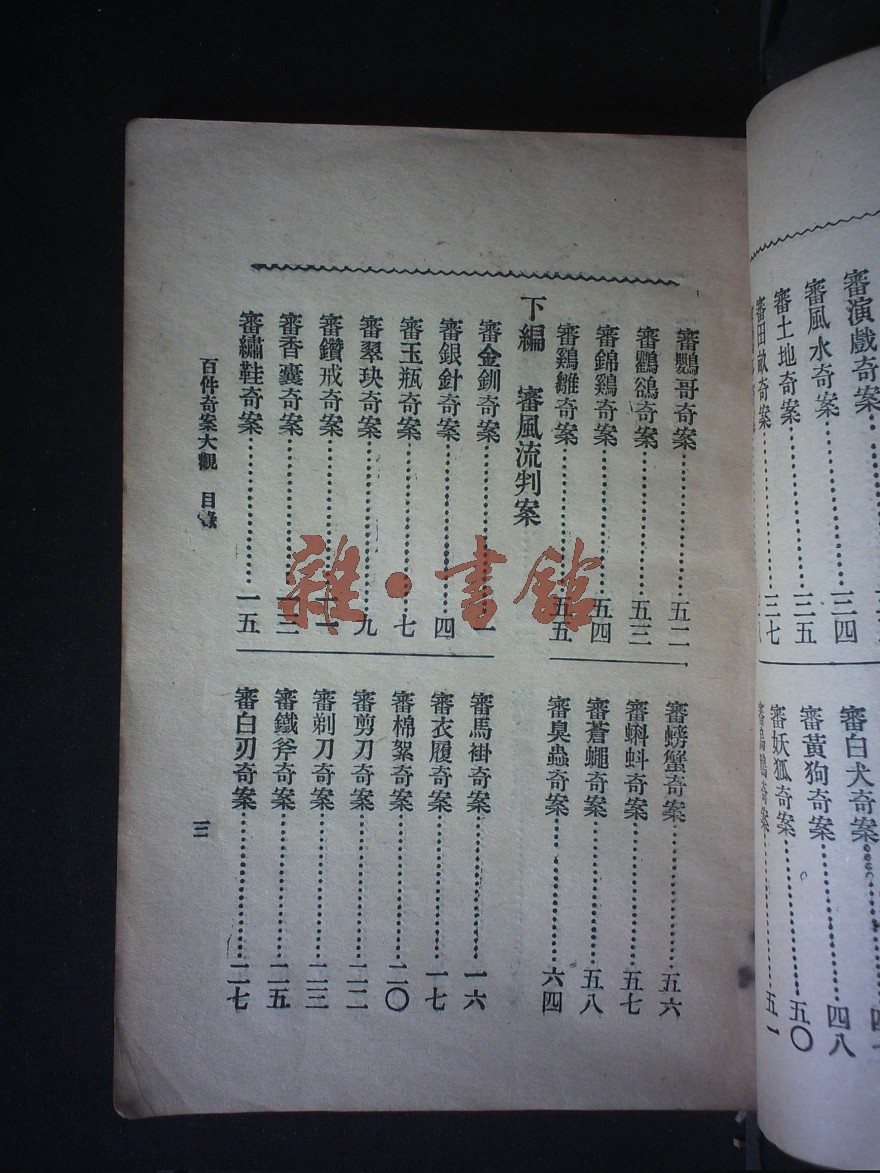 審演戲奇案
審風水奇案三四
審土地奇案三五
審田畝奇案三七
審白犬奇案
審黃狗奇案四八
審妖狐奇案五〇
五一
審鸚哥奇案五二
審鸜鵒奇案五三
審錦鷄奇案五四
審鷄雛奇案五五
審螃蟹奇案五六
審蝌蚪奇案五七
審蒼蠅奇案五八
審臭蟲奇案六四
下編 審風流判案
審金釧奇案一
審銀針奇案四
審玉瓶奇案七
審翠玦奇案九
審鑽戒奇案
審香囊奇案
審繡鞋奇案一五
審馬褂奇案一六
審衣履奇案一七
審棉絮奇案二〇
審剪刀奇案二二
審剃刀奇案二三
審鐵斧奇案二五
審白刃奇案二七
百件奇案大觀 目錄
三
雜·書館